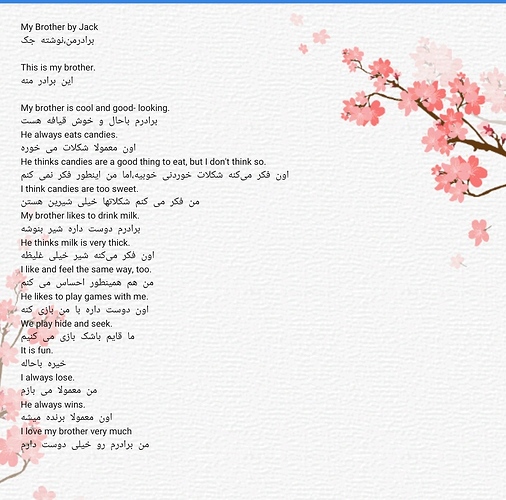 My Brother by Jack
برادرمن،نوشته جک
This is my brother.
این برادر منه
My brother is cool and good- looking.
برادرم باحال و خوش قیافه هست
He always eats candies.
اون معمولا شکلات می خوره
He thinks candies are a good thing to eat, but I don't think so.
اون فکر می‌کنه شکلات خوردنی خوبیه،اما من اینطور فکر نمی کنم
I think candies are too sweet.
من فکر می کنم شکلاتها خیلی شیرین هستن
My brother likes to drink milk.
برادرم دوست داره شیر بنوشه
He thinks milk is very thick.
اون فکر می‌کنه شیر خیلی غلیظه
I like and feel the same way, too.
من هم همینطور احساس می کنم
He likes to play games with me.
اون دوست داره با من بازی کنه
We play hide and seek.
ما قایم باشک بازی می کنیم
It is fun.
خیره باحاله
I always lose.
من معمولا می بازم
He always wins.
اون معمولا برنده میشه
I love my brother very much
من برادرم رو خیلی دوست دارم